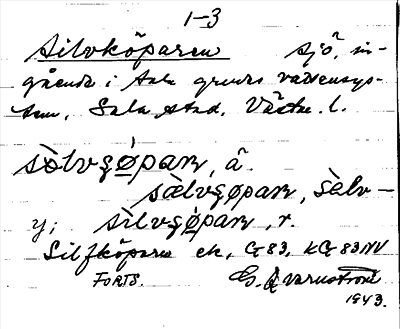 1-3
Silvköparen sjö, in-
gående i Sala gruvas vattensys-
tem, Sala stad, Västm. l.
sòlvgǿpaʀ, â
sælvgøpaʀ, sèlv-
y; sìlvgǿpaʀ, r.
Silfköparn ek, G 83, KG 83 NV
FORTS. G. Qvarnström
1943.